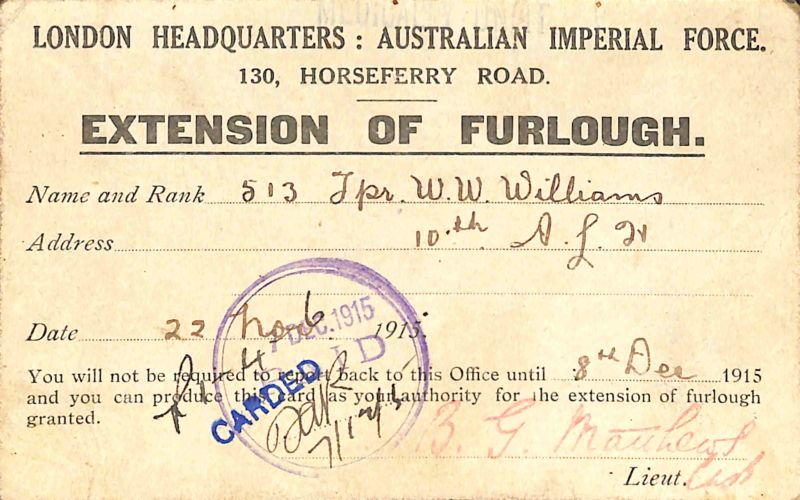 LONDON HEADQUARTERS : AUSTRALIAN IMPERIAL FORCE.
130, HORSEFERRY ROAD.
EXTENSION OF FURLOUGH.
Name and Rank 513 Tpr. W. W. Williams
Address 10.th A. L. H
Date 22 Nov 1915.
7 DEC. 1915
PAID
CARDED
You will not be required to report back to this Office until 8th Dec 1915
and you can produce this card as your authority for the extension of furlough
granted.
7/12/15
B. G. Matthews
Lieut.